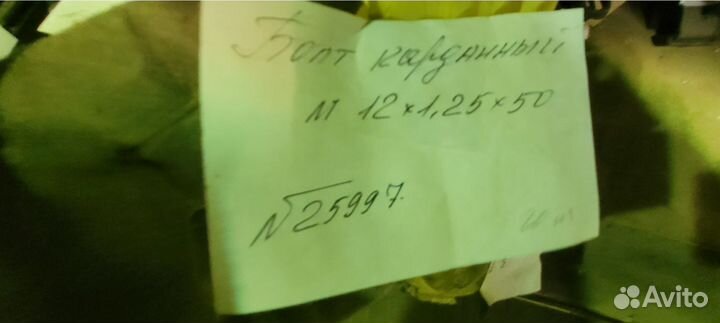 Болт карданный
М 12×1,25×50
N 25997
Avito